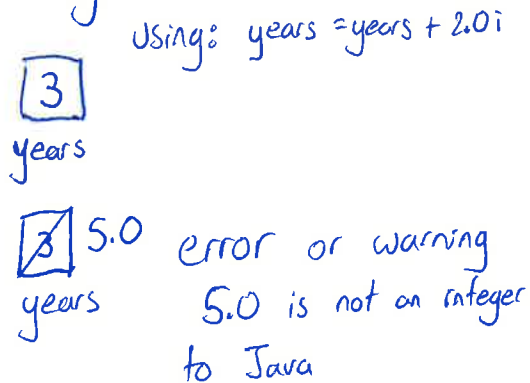 Using: years = years + 2.0;
3
years
3 5.0 error or warning
years 5.0 is not an integer
to Java